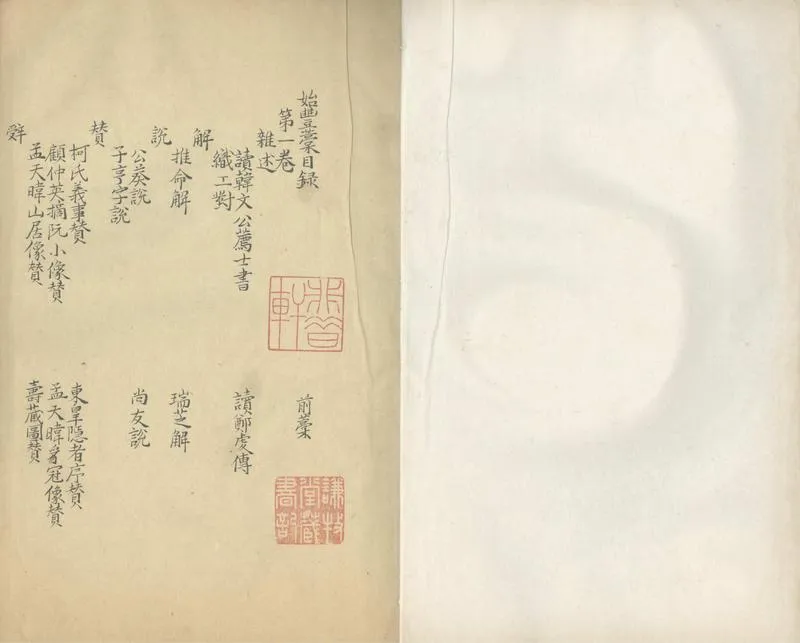 始豐藁目録
第一卷 前藁
雜述
讀韓文公薦士書 讀鄭虔傳
織工對
解
推命解 瑞芝解
說
公葵說 尚友說
子亨字說
賛
柯氏義事賛 東皐隱者序賛
顧仲英摘阮小像賛 孟天暐豸冠像賛
孟天暐山居像賛 壽藏圖賛
辤
謙牧堂藏書記